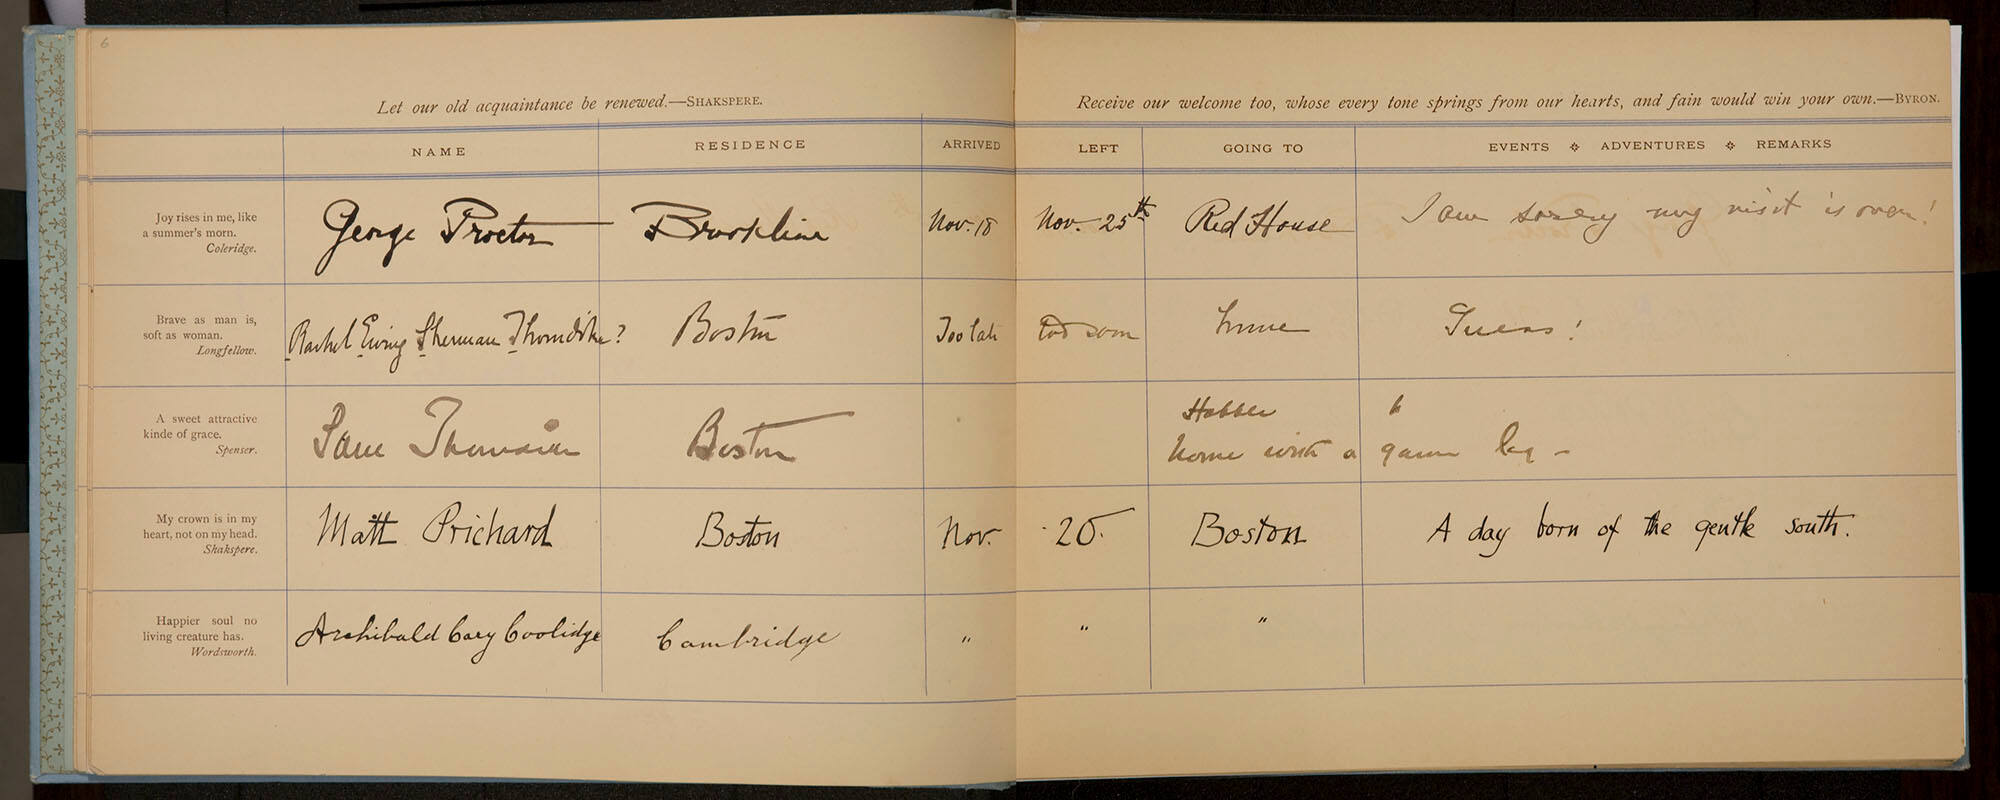 6
Let our old acquaintance be renewed.—SHAKSPERE.
Receive our welcome too, whose every tone springs from our hearts, and fain would win your own.—BYRON.
NAME RESIDENCE ARRIVED LEFT GOING TO EVENTS ADVENTURES REMARKS
Joy rises in me, like
a summer's morn.
Coleridge.
George Proctor Brookline Nov. 18 Nov. 25th Red House I am sorry my visit is over!
Brave as man is,
soft as woman.
Longfellow.
Rachel Ewing Sherman Thorndike? Boston Too late too soon home Guess!
A sweet attractive
kinde of grace.
Spenser.
Boston
Hobble
home with a game leg –
My crown is in my
heart, not on my head.
Shakspere.
Matt Prichard Boston Nov. 25. Boston A day born of the gentle south.
Happier soul no
living creature has.
Wordsworth.
Archibald Cary Coolidge Cambridge " " "